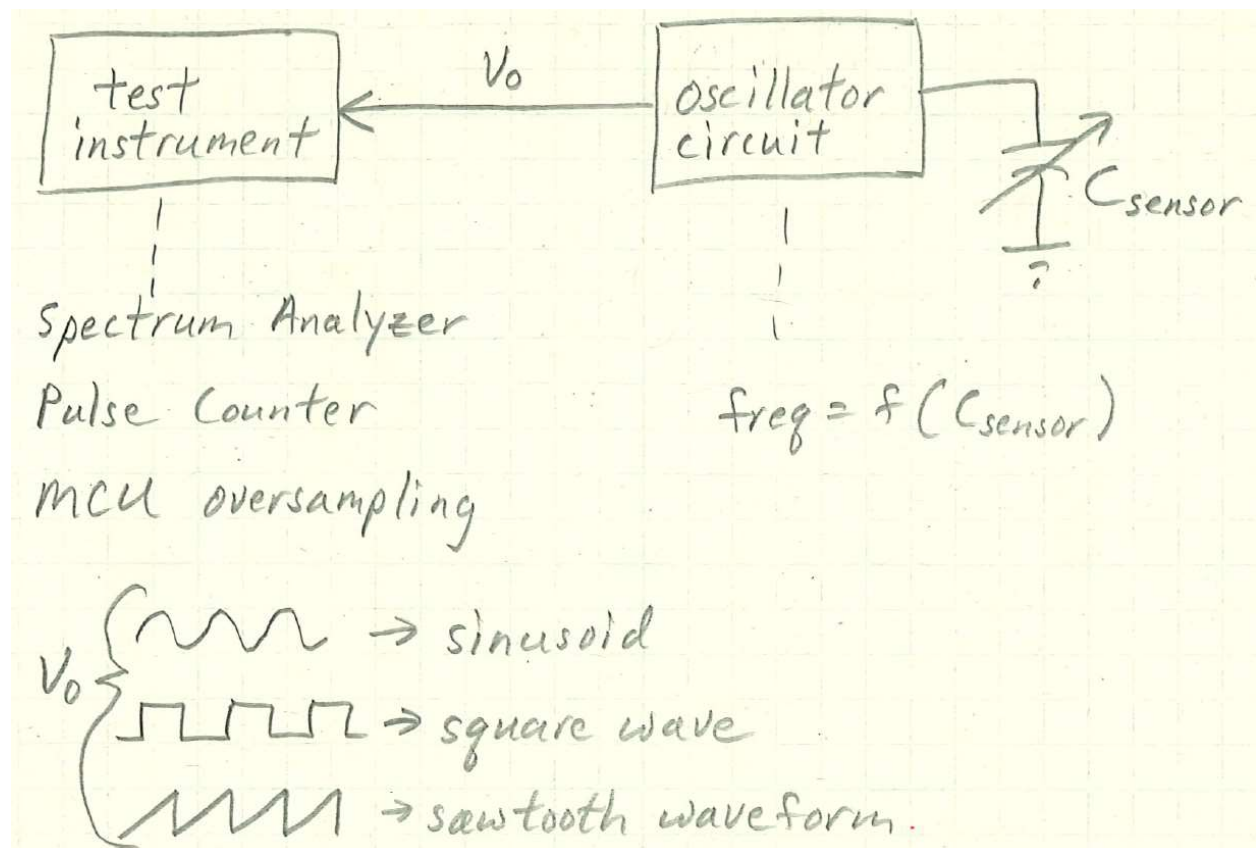 test
instrument
V₀
oscillator
circuit
Csensor
Spectrum Analyzer
Pulse Counter
MCU oversampling
freq = f (Csensor)
V₀
→ sinusoid
→ square wave
→ sawtooth waveform.